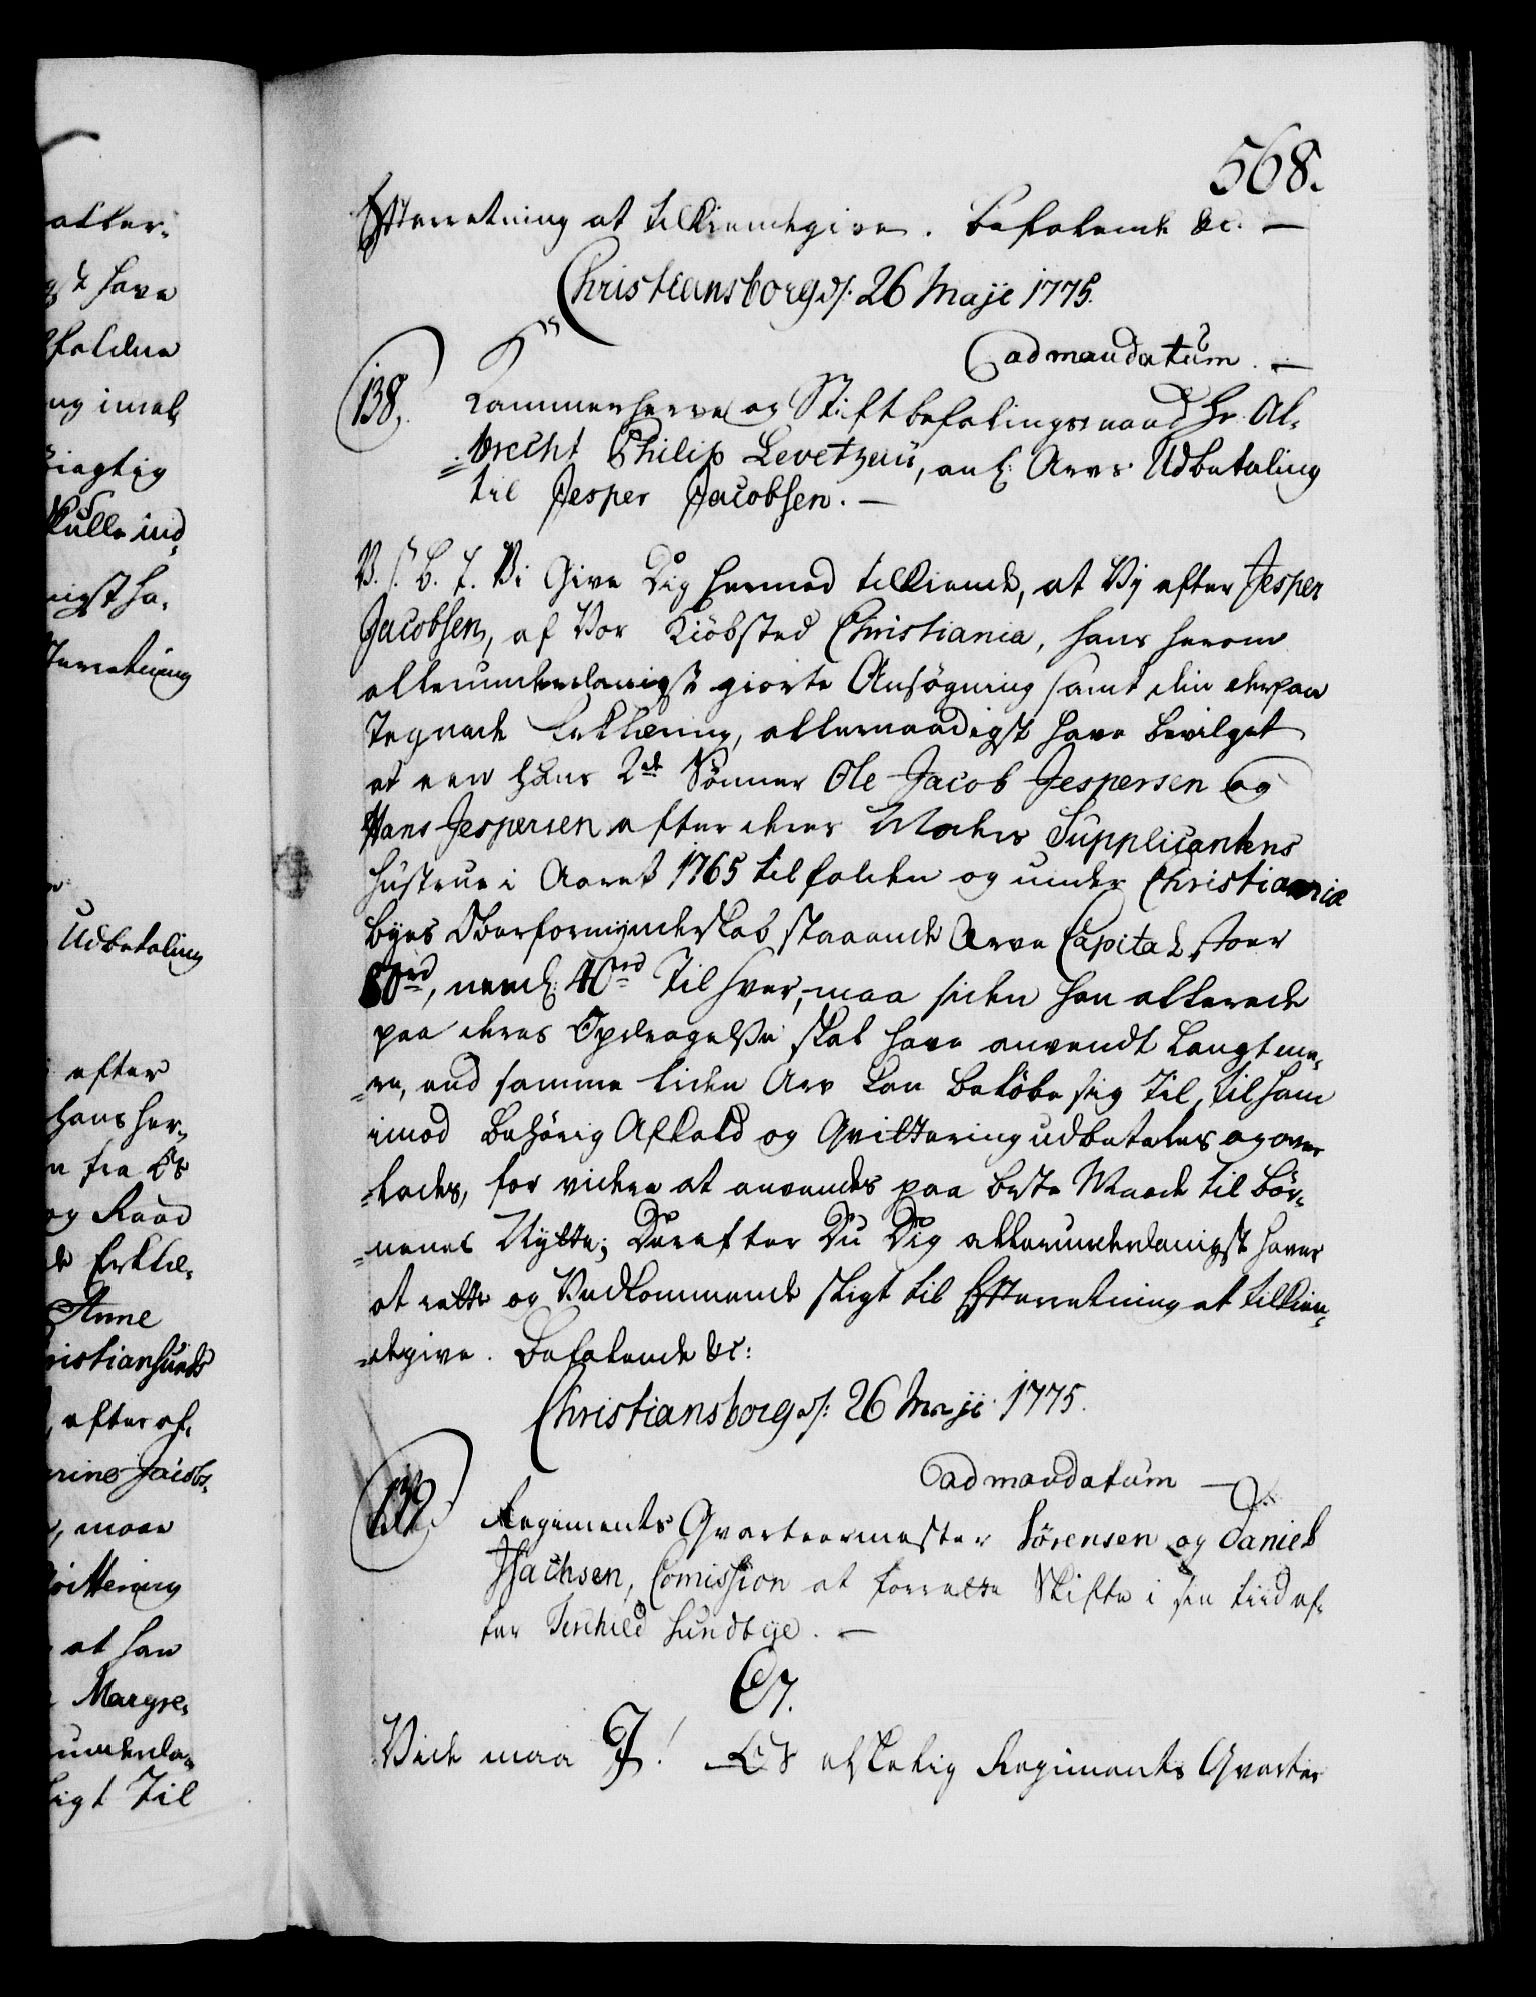 568.
Efterretning at tilkiendegive. Befalende &c. —
Christiansborg d: 26 Maji 1775.
ad mandatum. —
138.
Kammerherre og Stiftbefalingsmand Hr. Al-
brecht Philip Levetzau, anl: Arvs Udbetaling
til Jesper Jacobsen. —
V. S. B. T. Vi Give Dig hermed tilkiende, at Vj efter Jesper
Jacobsen, af Vor Kiöbsted Christiania, hans herom
allerunderdanigst giorte Ansögning samt din derpaa
Tegnede Erklæring, allernaadigst have bevilget
at een hans 2de Sönner Ole Jacob Jespersen og
Hans Jespersen efter deres Moder Supplicantens
Hustrue i Aaret 1765 tilfalden og under Christiania
byes Oberformynderskab staaende Arve Capital stoer
80rd, nemL: 40rd Til hver, maa siden han allerede
paa deres Opdragelse skal have anvendt langt me-
re, end samme liden Arv kan belöbe sig til, til ham
imod behörig Afkald og Qvittering udbetales og over-
lades, for videre at anvendes paa beste Maade til bör-
nenes Nytte; Derefter Du Dig allerunderdanigst haver
at rette og Vedkommende sligt til Efterretning at tilkien-
degive. Befalende &c:
Christiansborg d: 26 Maji 1775.
ad mandatum —
139.
Regiments Qvarteermester Sörensen og Daniel
Isachsen, Comission at forrette Skifte i sin tiid ef-
ter Terchild Sundbye. —
C7.
Viide maa J! At Os elskelig Regiments Qvarter
aller-
gst have
ng imel
rigtig
skulle ind-
nigst ha-
terretning
Udbetaling
efter
hans her-
n fra Os
og Raad
de Erklæ-
Anne
ristiansunds
, efter af-
rine Jacobs-
, maae
vittering
at han
Margre-
underda-
ligt Til